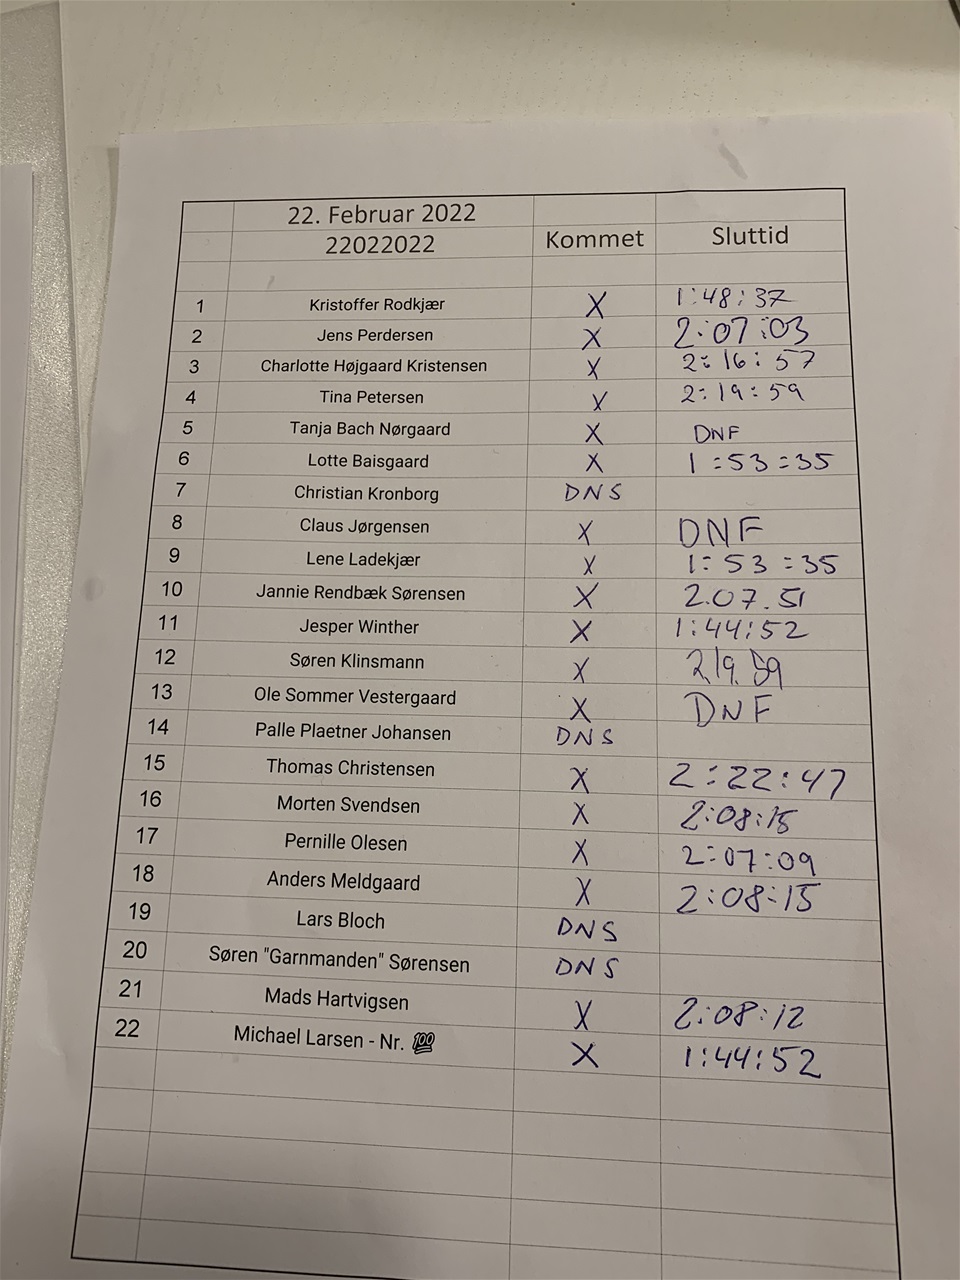 22. Februar 2022
22022022 Kommet Sluttid
1 Kristoffer Rodkjær X 1:48:37
2 Jens Perdersen X 2:07:03
3 Charlotte Højgaard Kristensen X 2:16:57
4 Tina Petersen X 2:19:59
5 Tanja Bach Nørgaard X DNF
6 Lotte Baisgaard X 1:53:35
7 Christian Kronborg DNS
8 Claus Jørgensen X DNF
9 Lene Ladekjær X 1:53:35
10 Jannie Rendbæk Sørensen X 2.07.51
11 Jesper Winther X 1:44:52
12 Søren Klinsmann X 2.19.59
13 Ole Sommer Vestergaard X DNF
14 Palle Plaetner Johansen DNS
15 Thomas Christensen X 2:22:47
16 Morten Svendsen X 2:08:15
17 Pernille Olesen X 2:07:09
18 Anders Meldgaard X 2:08:15
19 Lars Bloch DNS
20 Søren "Garnmanden" Sørensen DNS
21 Mads Hartvigsen X 2:08:12
22 Michael Larsen - Nr. 💯 X 1:44:52